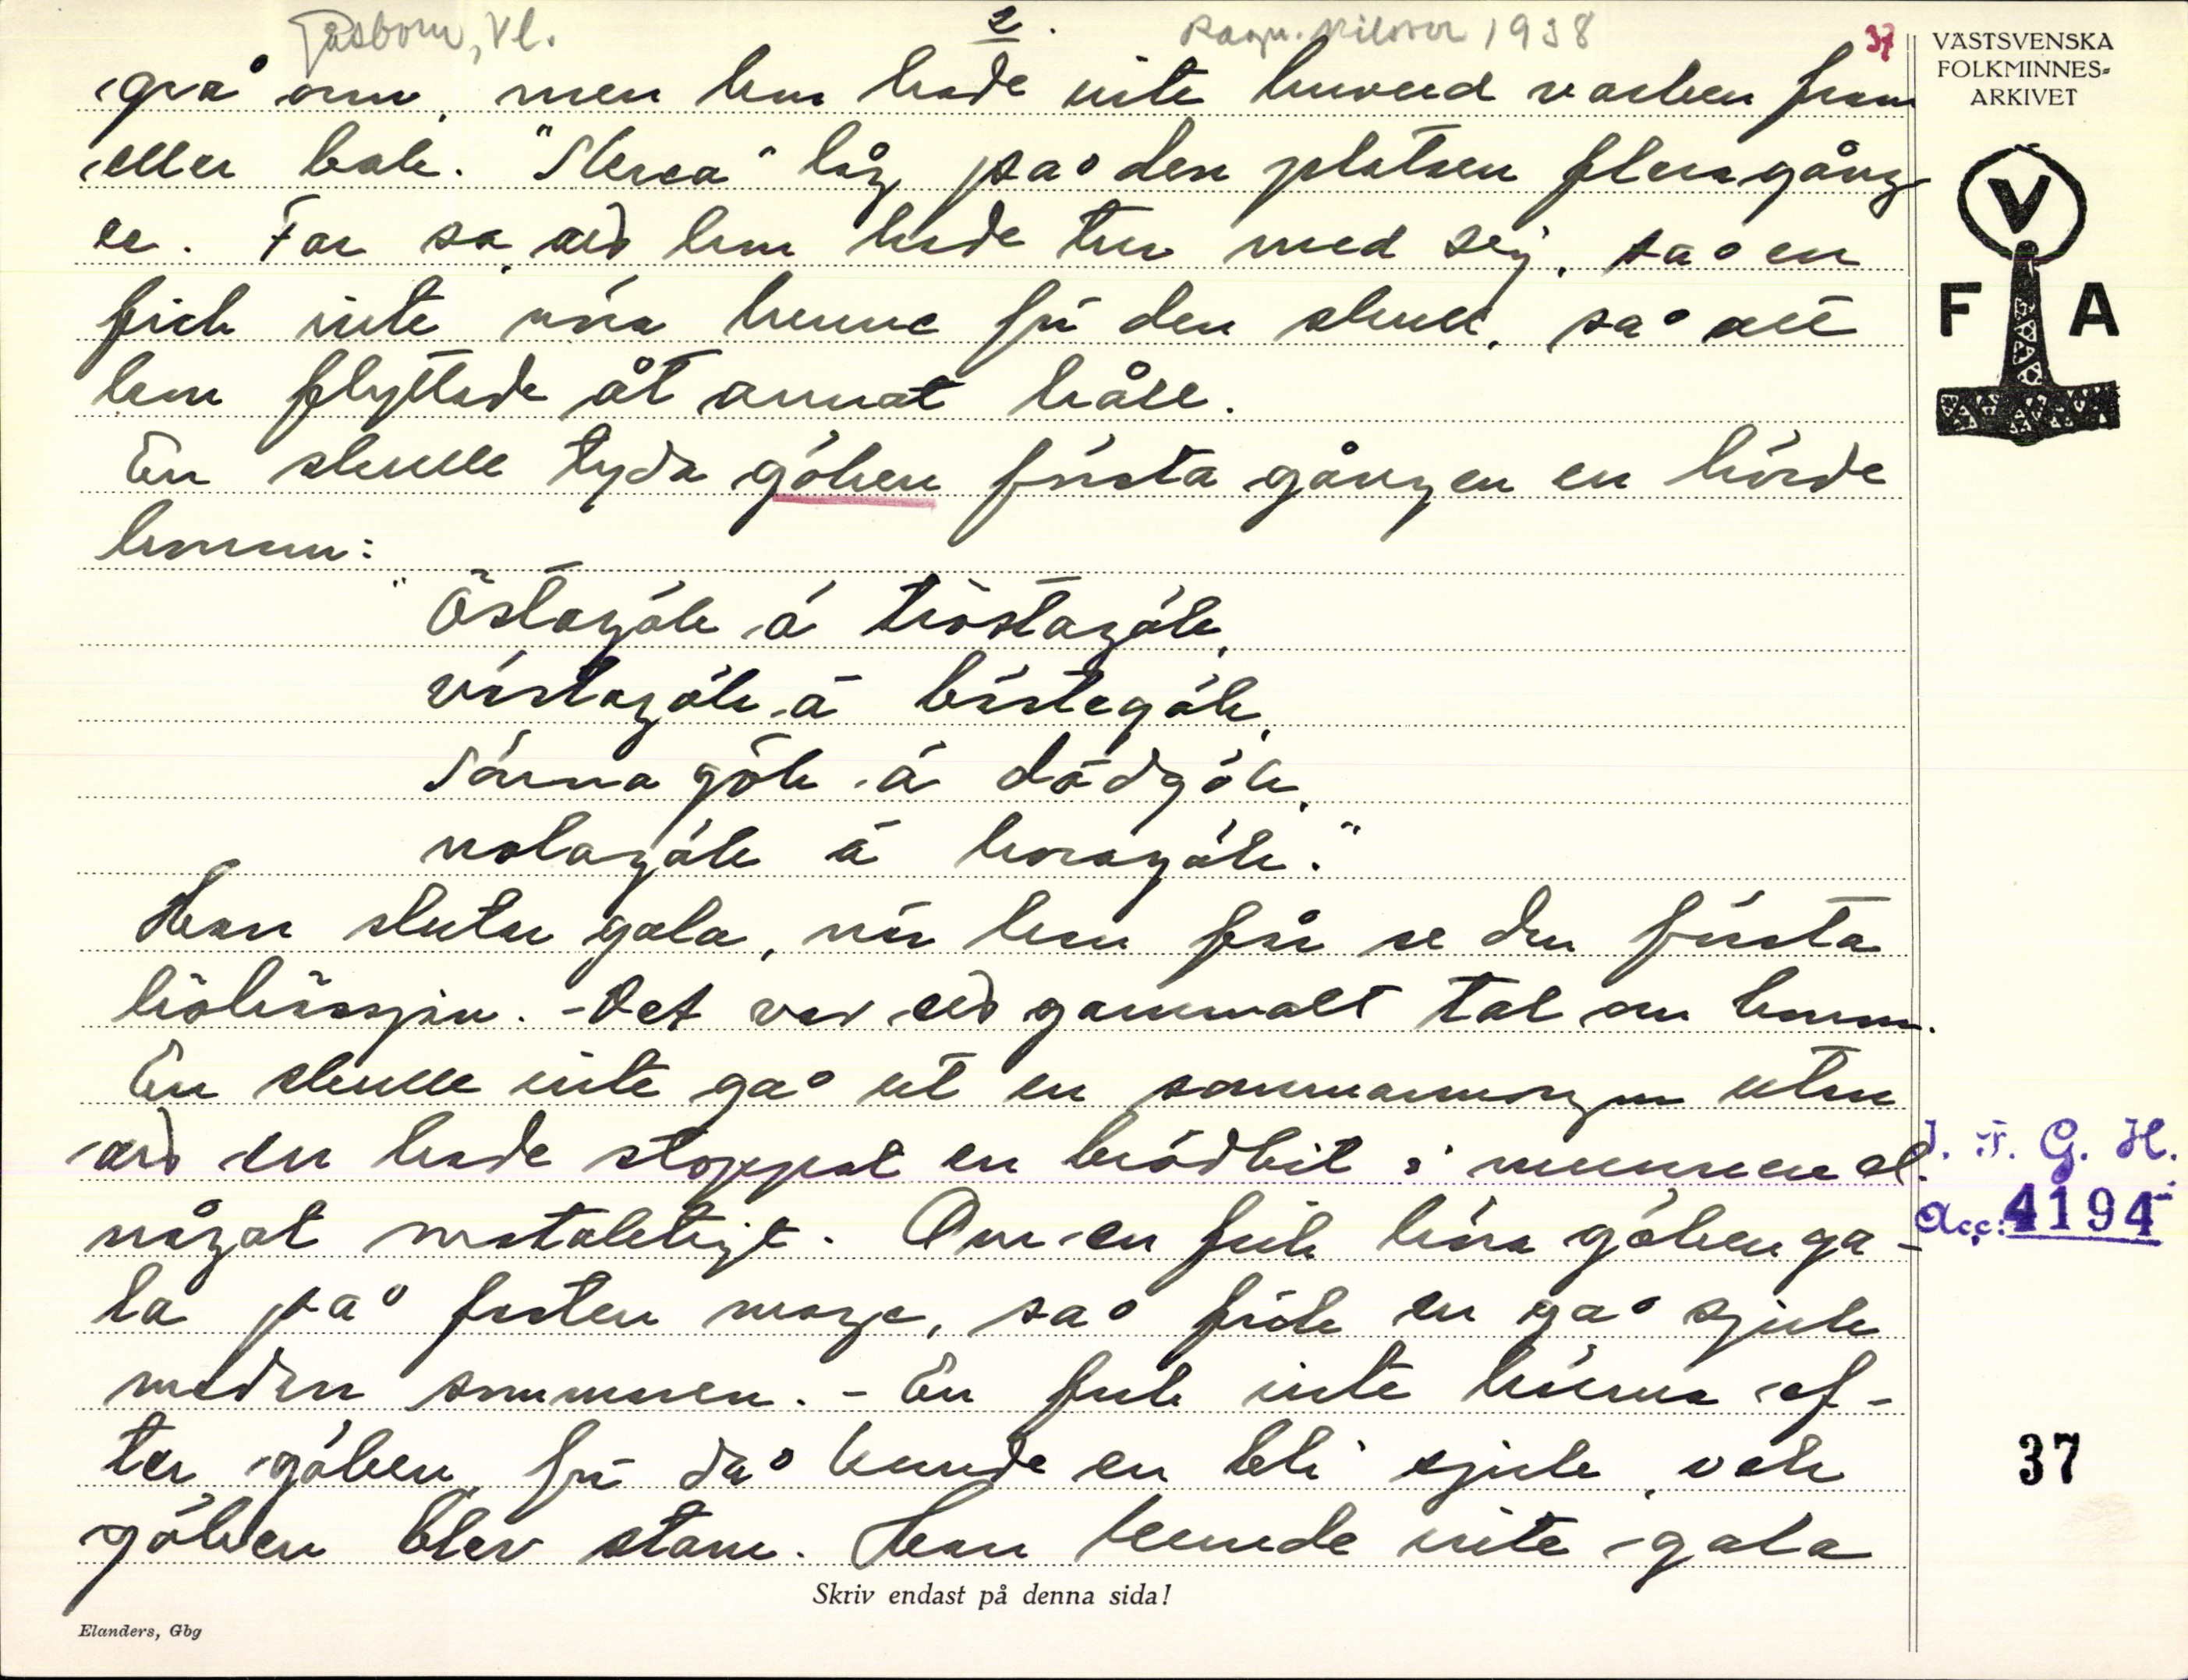 Gåsborn, Vl.
2.
Ragn. Nilsson 1938
37
VÄSTSVENSKA
FOLKMINNES-
ARKIVET
V
F A
grå om, men han hade inte huvud varken fram
eller bak. "Skrea" låg på den platsen flera gång
er. Far sa, att han hade tur med sej, så en
fick inte röra henne för den skull, så att
han flyttade åt annat håll.
En skulle tyda göken första gången en hörde
honom:
"Östagök ä tröstagök,
västagök ä bästegök,
sörna gök ä dödgök,
nolagök ä horagök."
Han slutar gala, när han får se den första
höhässjan. - Det var ett gammalt tal om honom.
En skulle inte gå ut en sommarmorgon utan
att en hade stoppat en brödbit i munnen el.
något mataktigt. Om en fick höra göken ga-
la på fasten mage, så fick en gå sjuk
medan sommaren. - En fick inte härma ef-
ter göken, för då kunde en bli sjuk, och
göken blev stam. Han kunde inte gala
I. F. G. H.
Acc: 4194
37
Skriv endast på denna sida!
Elanders, Gbg